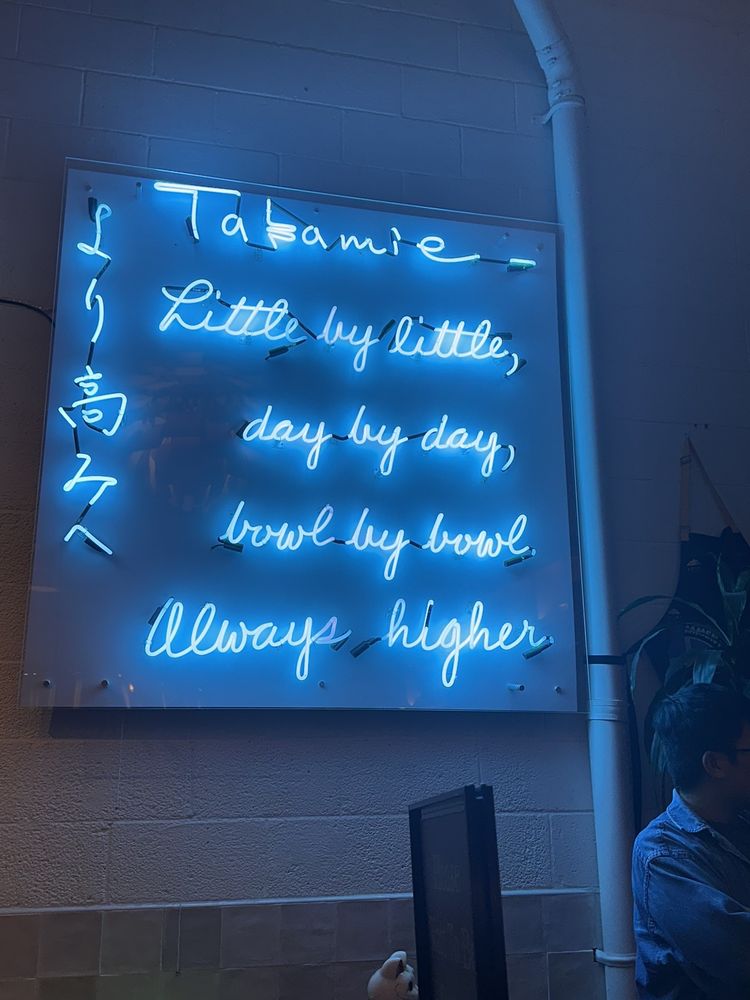 より高みへ
Takamie
Little by little,
day by day,
bowl by bowl
Always higher